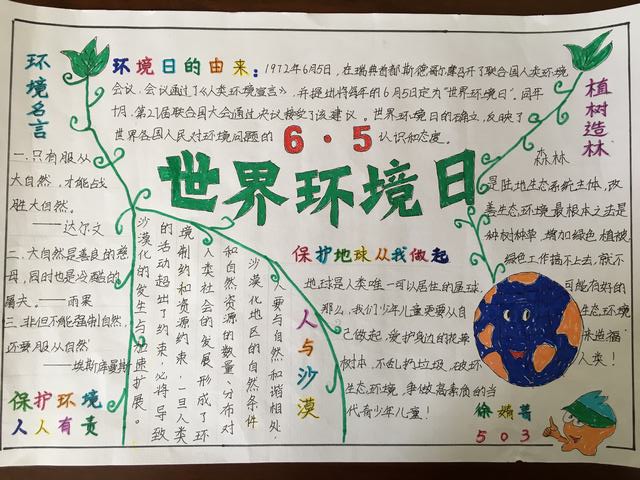 环境名言
一.只有服从
大自然,才能战
胜大自然。
——达尔文
二.大自然是善良的慈
母,同时也是冷酷的
屠夫。——雨果
三.非但不能强制自然,
还要服从自然
——埃斯库曼斯
保护环境
人人有责
环境日的由来:1972年6月5日,在瑞典首都斯德哥尔摩召开了联合国人类环境
会议,会议通过了《人类环境宣言》,并提出将每年的6月5日定为"世界环境日"。同年
十月,第27届联合国大会通过决议接受了该建议。世界环境日的确立,反映了
世界各国人民对环境问题的
认识和态度。
6·5
世界环境日
植树造林
森林
是陆地生态系统主体,改
善生态环境最根本之法是
种树种草,增加绿色植被,
绿色工作搞不上去,就不
可能有好的
生态环境
来造福
人类!
保护地球从我做起
地球是人类唯一可以居住的星球,
那么,我们少年儿童更要从自
己做起,爱护身边的花草
树木,不乱扔垃圾,不破坏
生态环境,争做高素质的当
代青少年儿童!
人与沙漠
人要与自然和谐相处,
沙漠化地区的自然条件
和自然资源的数量、分布对
人类社会的发展形成了环
境制约和资源约束,一旦人类
的活动超出了约束,必将导致
沙漠化的发生与加速扩展。
徐婧菁
503